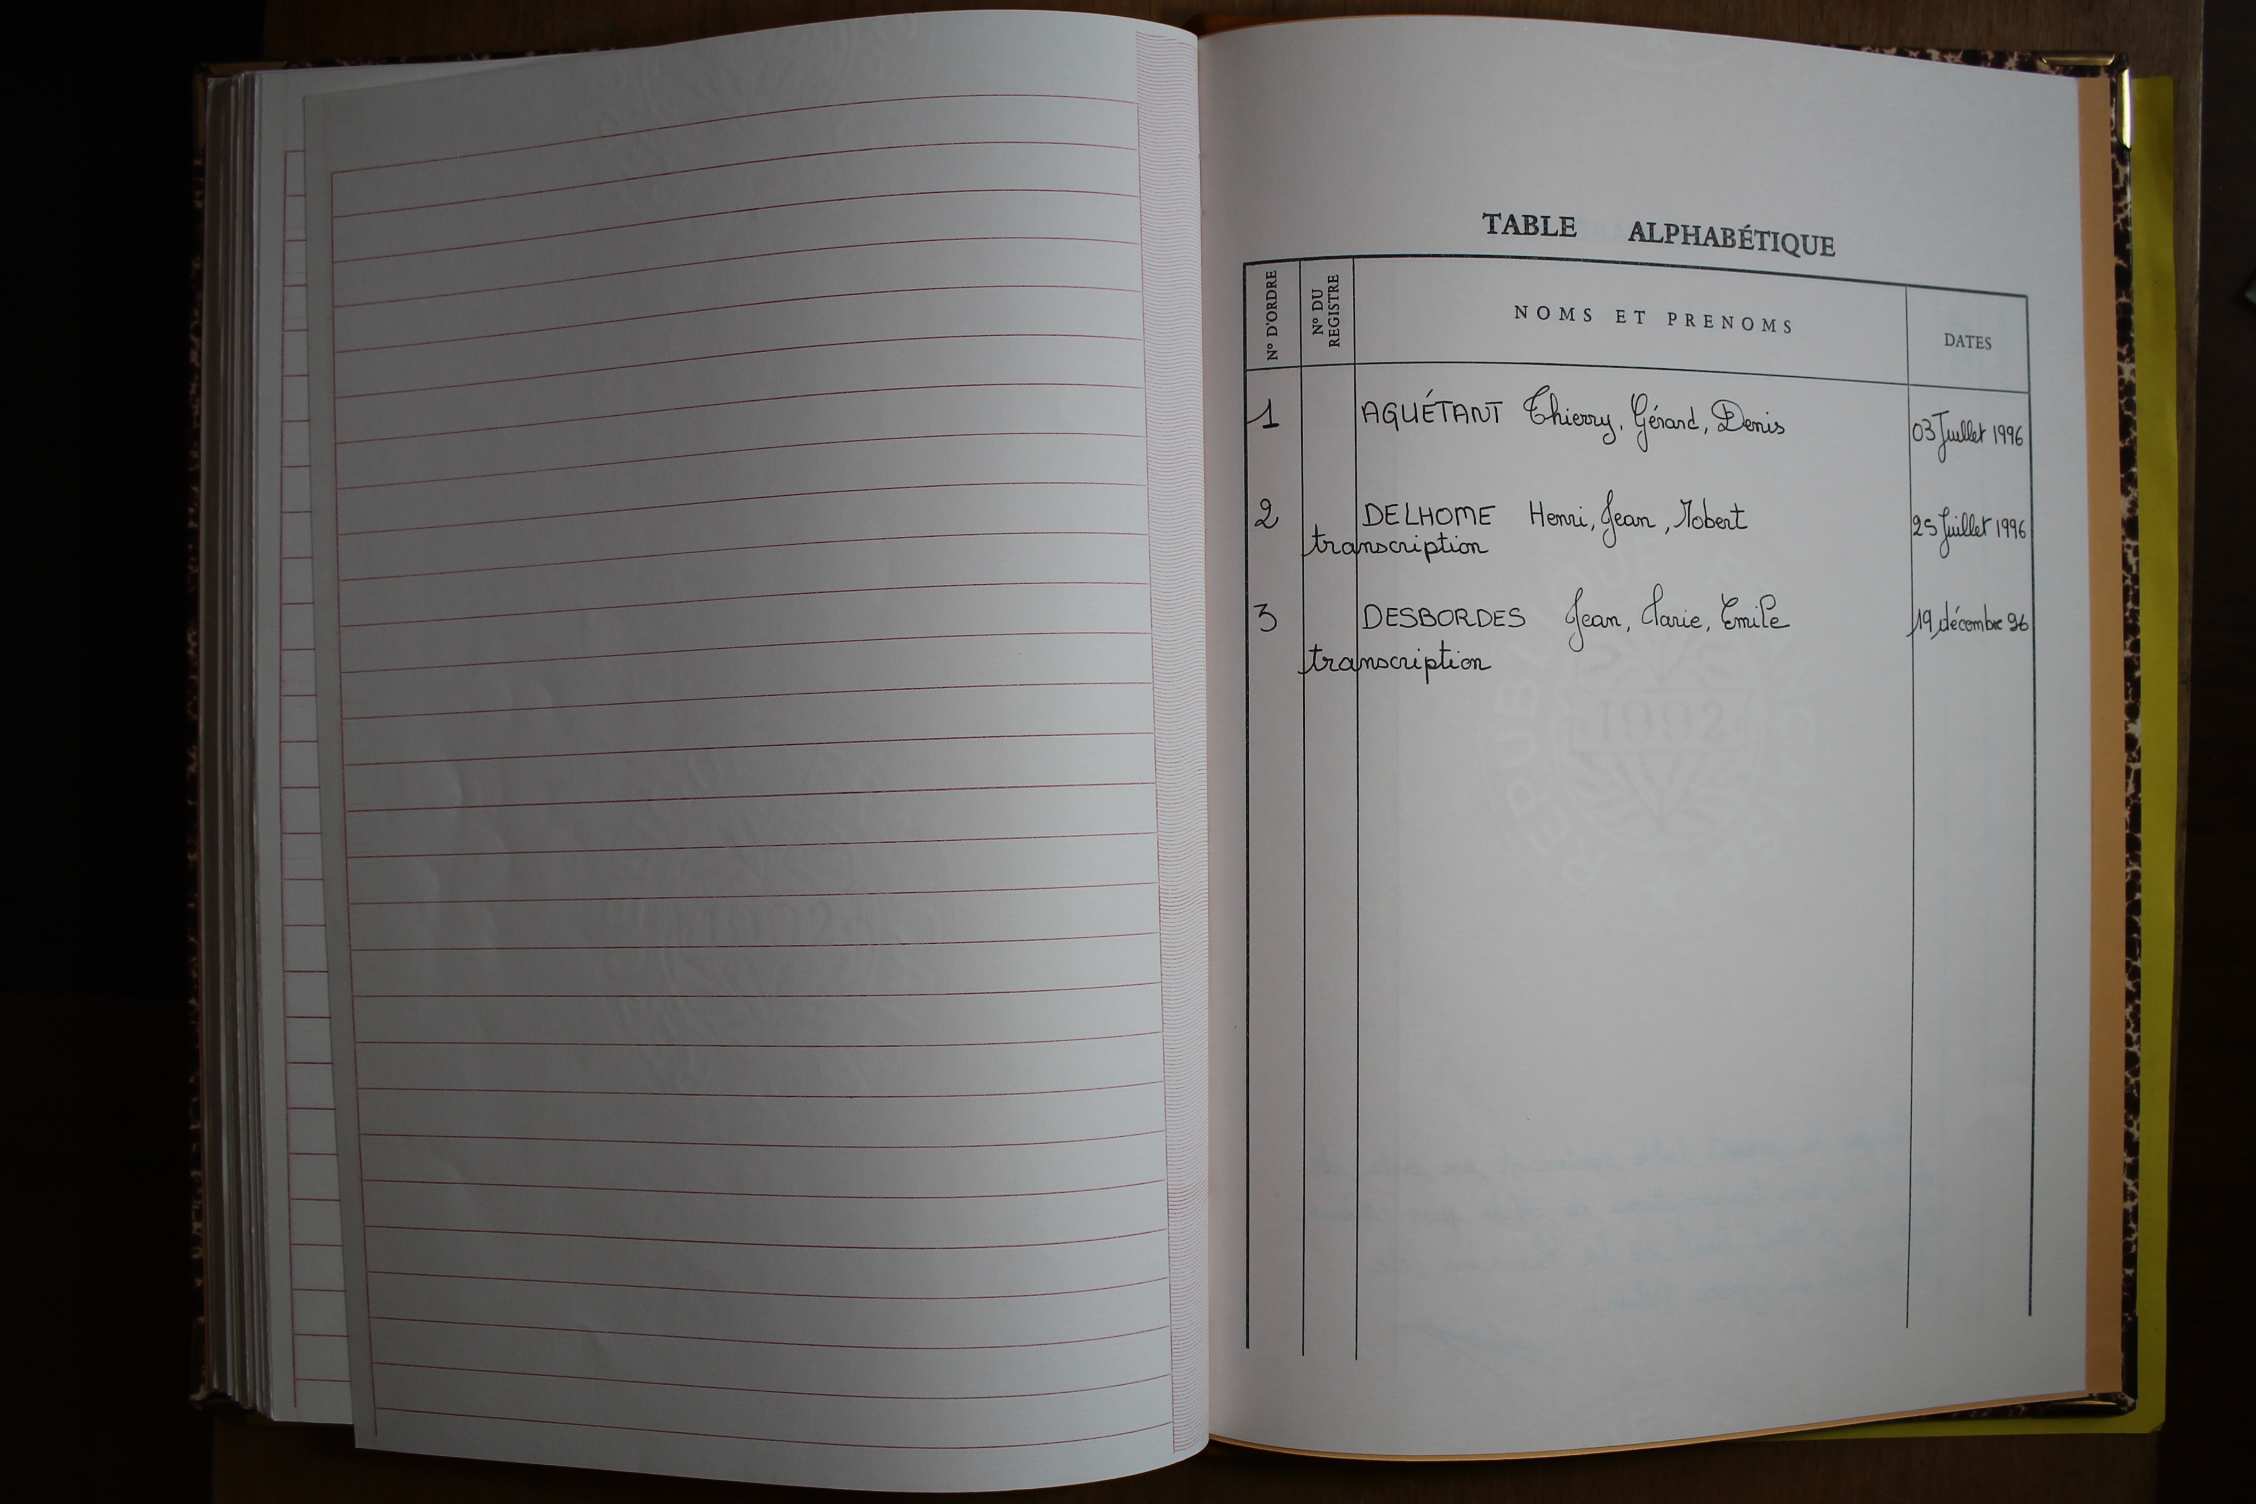 TABLE ALPHABÉTIQUE
N° D'ORDRE
N° DU REGISTRE
NOMS ET PRENOMS
DATES
1 AGUÉTANT Thierry, Gérard, Denis 03 Juillet 1996
2 DELHOME Henri, Jean, Robert 25 Juillet 1996
transcription
3 DESBORDES Jean, Marie, Emile 19 décembre 96
transcription